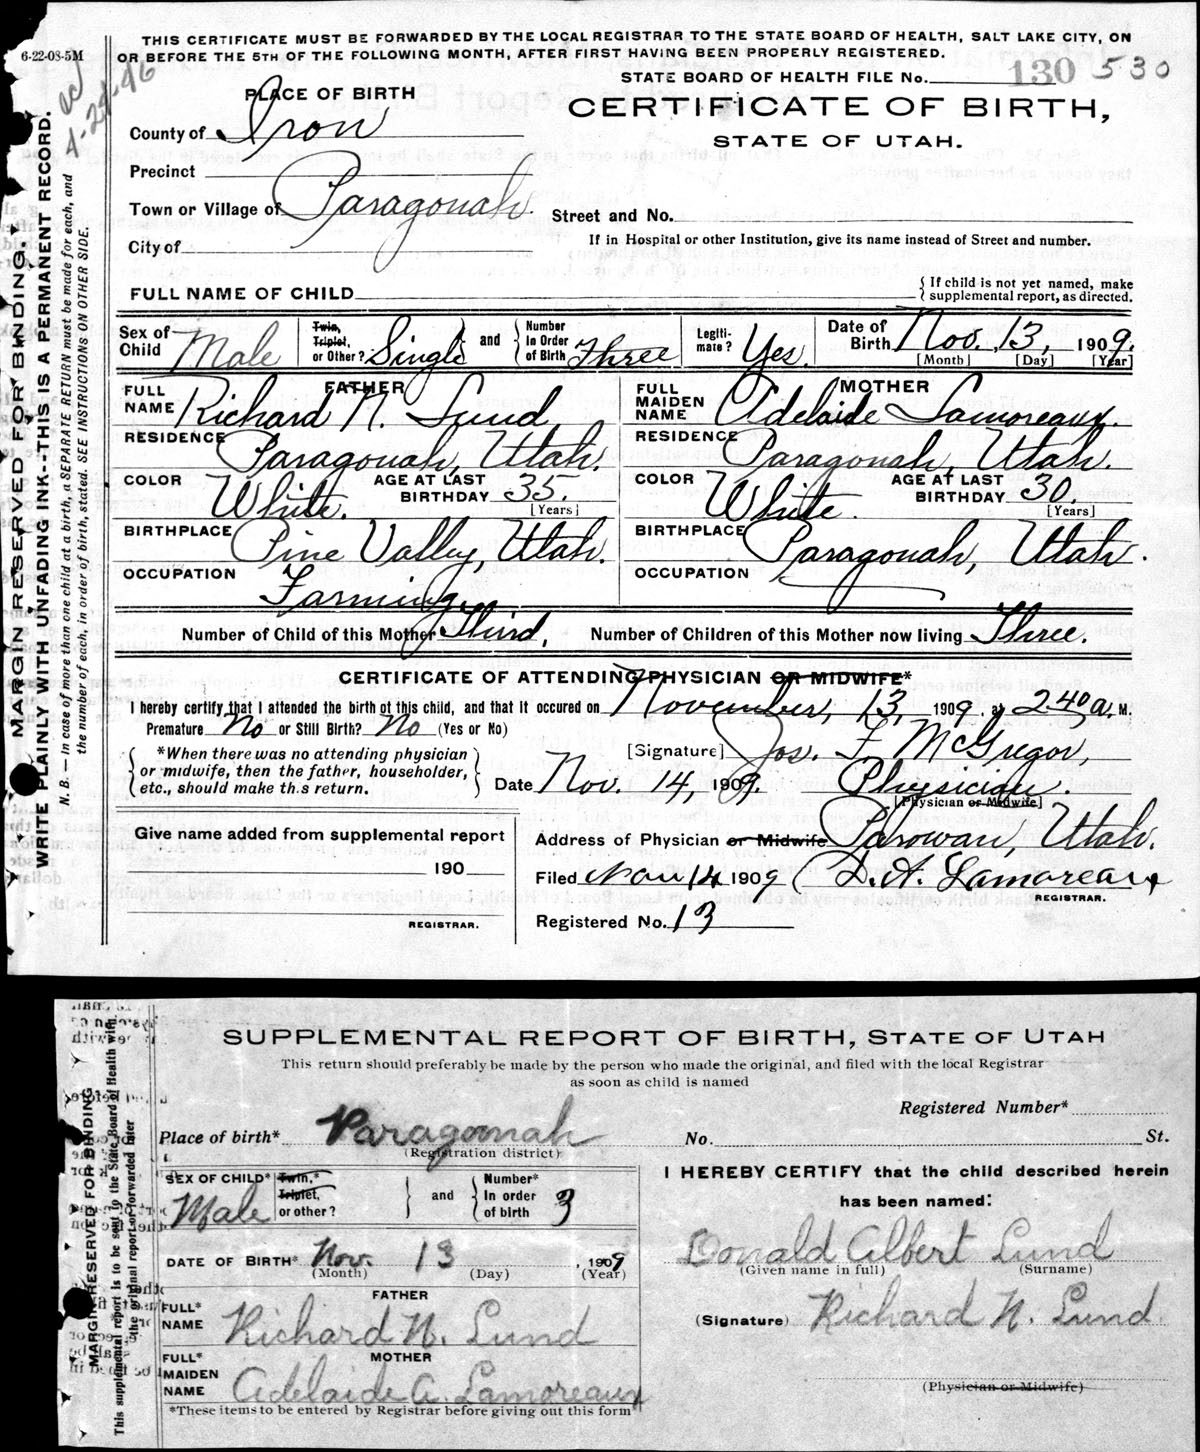 THIS CERTIFICATE MUST BE FORWARDED BY THE LOCAL REGISTRAR TO THE STATE BOARD OF HEALTH, SALT LAKE CITY, ON
OR BEFORE THE 5TH OF THE FOLLOWING MONTH, AFTER FIRST HAVING BEEN PROPERLY REGISTERED.
6-22-08-5M
4-24-46
STATE BOARD OF HEALTH FILE No. 130 530
PLACE OF BIRTH
CERTIFICATE OF BIRTH,
STATE OF UTAH.
County of Iron
Precinct
Town or Village of Paragonah
Street and No.
City of
If in Hospital or other Institution, give its name instead of Street and number.
FULL NAME OF CHILD
{ If child is not yet named, make
supplemental report, as directed.
Sex of Child Male
Twin, Triplet, or Other? Single and Number In Order of Birth Three
Legitimate? Yes.
Date of Birth Nov. 13, 1909.
[Month] [Day] [Year]
FATHER
FULL NAME Richard N. Lund
MOTHER
FULL MAIDEN NAME Adelaide Lamoreaux.
RESIDENCE Paragonah, Utah.
RESIDENCE Paragonah, Utah.
COLOR White. AGE AT LAST BIRTHDAY 35. [Years]
COLOR White. AGE AT LAST BIRTHDAY 30. [Years]
BIRTHPLACE Pine Valley, Utah.
BIRTHPLACE Paragonah, Utah.
OCCUPATION Farming
OCCUPATION
Number of Child of this Mother Third, Number of Children of this Mother now living Three.
CERTIFICATE OF ATTENDING PHYSICIAN OR MIDWIFE*
I hereby certify that I attended the birth of this child, and that it occured on November, 13, 1909, at 2.40 a. M.
Premature No or Still Birth? No (Yes or No)
[Signature] Jos. F. McGregor,
*When there was no attending physician
or midwife, then the father, householder,
etc., should make th.s return.
Date Nov. 14, 1909. Physician.
[Physician or Midwife]
Give name added from supplemental report
190
REGISTRAR.
Address of Physician or Midwife Parowan, Utah.
Filed Nov 14 1909 D. A. Lamoreaux
REGISTRAR.
Registered No. 13
MARGIN RESERVED FOR BINDING.
WRITE PLAINLY WITH UNFADING INK--THIS IS A PERMANENT RECORD.
N. B. — In case of more than one child at a birth, a SEPARATE RETURN must be made for each, and
the number of each, in order of birth, stated. SEE INSTRUCTIONS ON OTHER SIDE.
SUPPLEMENTAL REPORT OF BIRTH, STATE OF UTAH
This return should preferably be made by the person who made the original, and filed with the local Registrar
as soon as child is named
Registered Number*
Place of birth* Paragonah
(Registration district)
No. St.
SEX OF CHILD* Male
Twin,* Triplet, or other? and Number* In order of birth 3
I HEREBY CERTIFY that the child described herein
has been named:
Donald Albert Lund
(Given name in full) (Surname)
DATE OF BIRTH* Nov. 13, 1909
(Month) (Day) (Year)
(Signature) Richard N. Lund
FATHER
FULL* NAME Richard N. Lund
MOTHER
FULL* MAIDEN NAME Adelaide A. Lamoreaux
(Physician or Midwife)
*These items to be entered by Registrar before giving out this form
MARGIN RESERVED FOR BINDING
This supplemental report is to be sent to the State Board of Health with
the original report or forwarded later